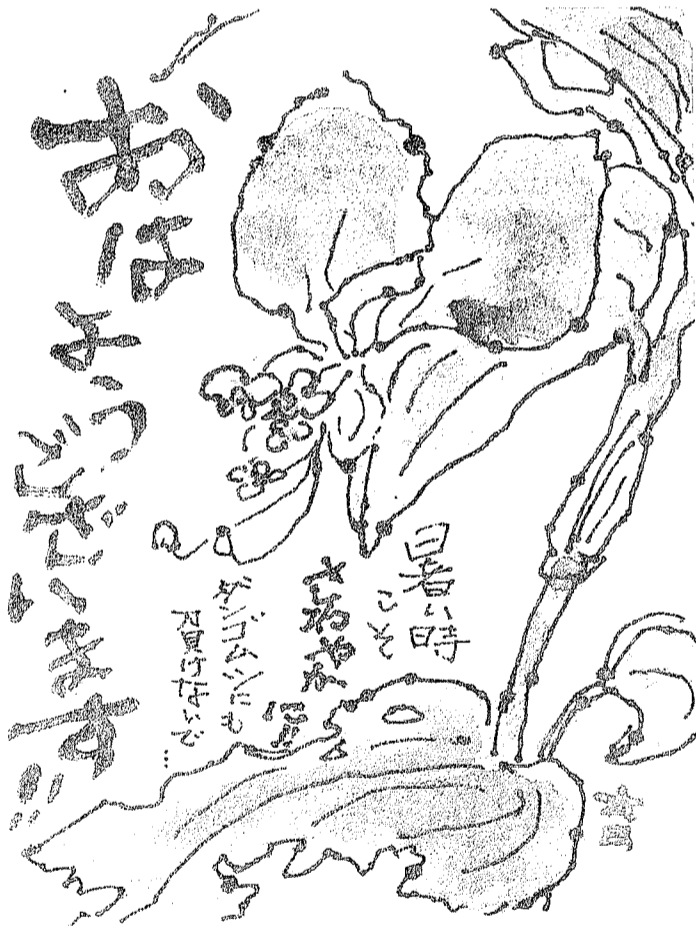 おはようございます
暑い時
こそ
さわやか
ダンゴムシにも
負けないで…